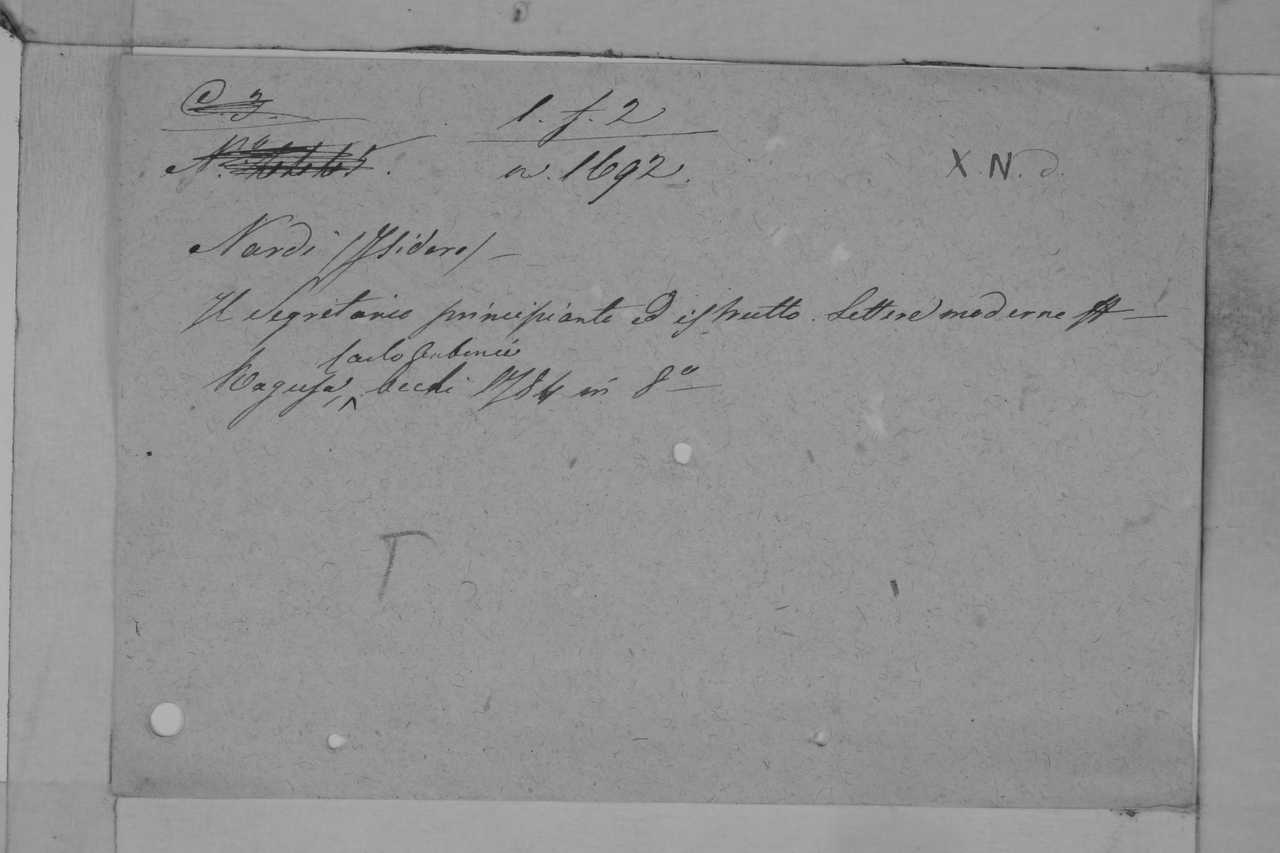 C. 3.
l. f. 2
N.
n. 1692.
X. N. d.
Nardi (Isidoro) –
Il Segretario principiante ed istrutto. Lettere moderne
Carlo Antonio
Ragusa, Occhi 1784 in 8º
T